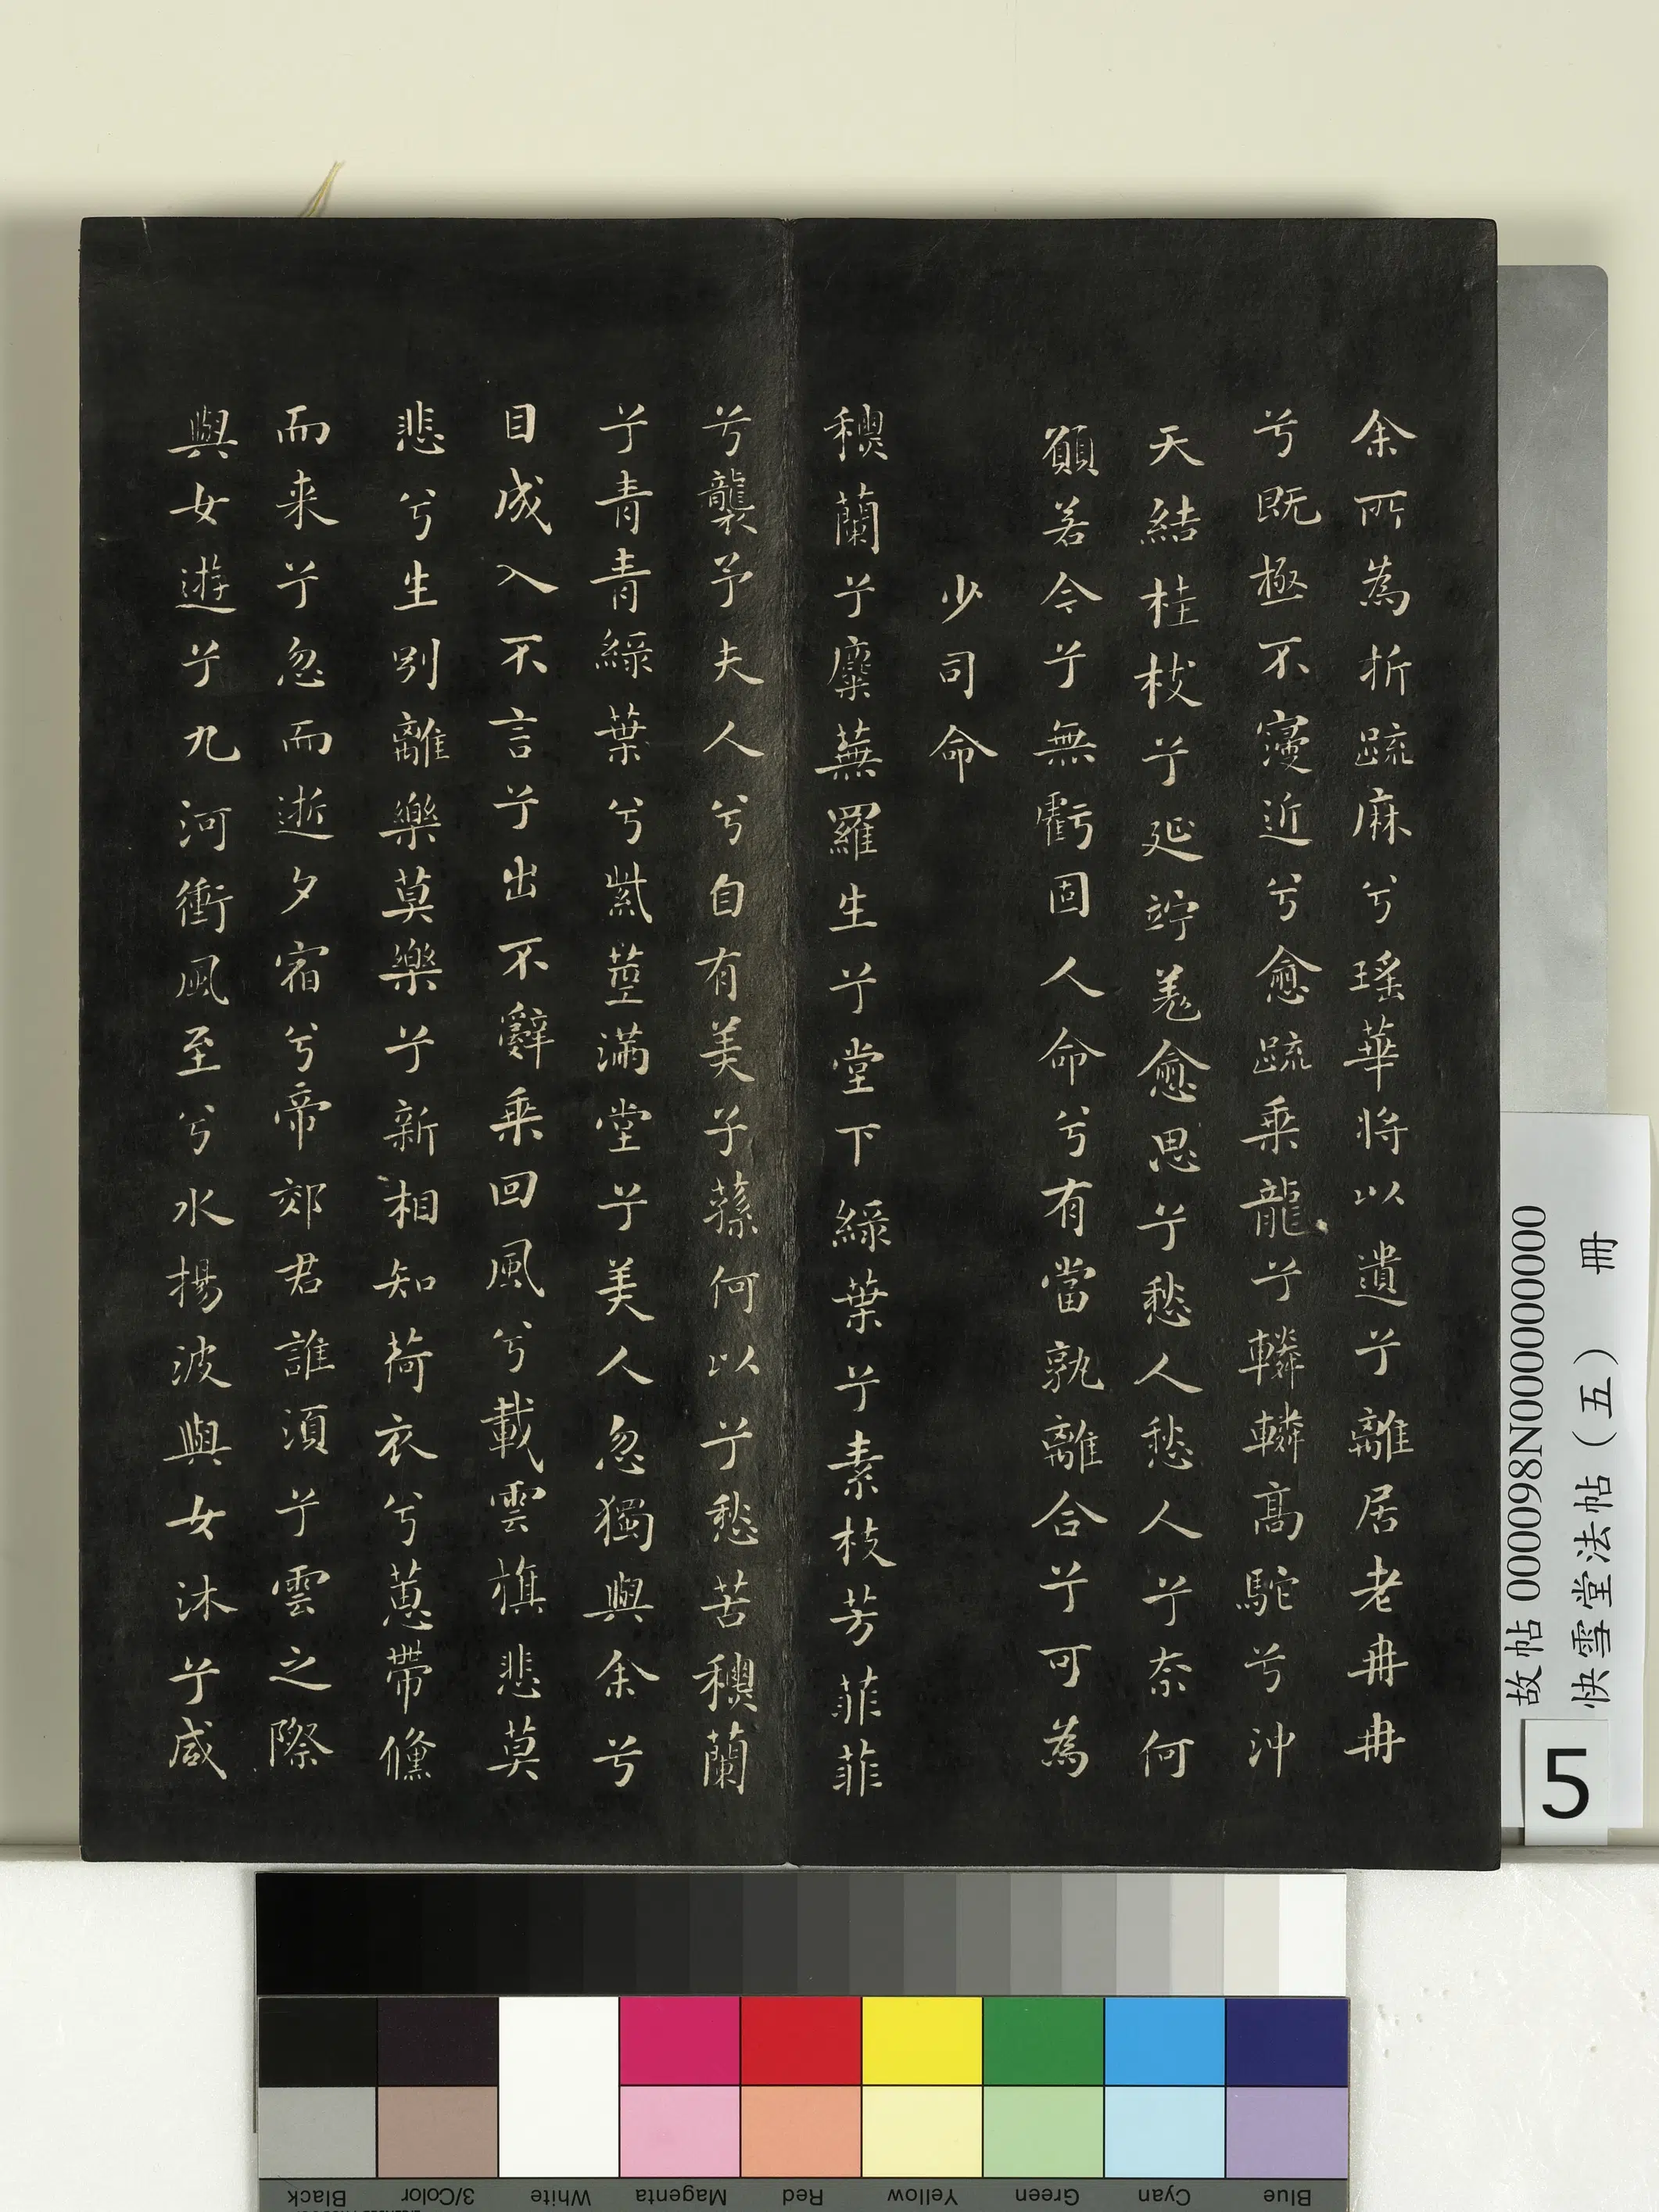 余所為折疏麻兮瑤華将以遺兮離居老冉冉
兮既極不寖近兮愈疏乗龍兮轔轔髙駝兮沖
天結桂枝兮延竚羌愈思兮愁人愁人兮奈何
願若今兮無虧固人命兮有當孰離合兮可為
少司命
穮蘭兮麋蕪羅生兮堂下緑葉兮素枝芳菲菲
兮襲予夫人兮自有美子蓀何以兮愁苦穮蘭
兮青青緑葉兮紫莖滿堂兮美人忽獨與余兮
目成入不言兮出不辭乗回風兮載雲旗悲莫
悲兮生别離樂莫樂兮新相知荷衣兮蕙帶儵
而来兮忽而逝夕宿兮帝郊君誰須兮雲之際
與女遊兮九河衝風至兮水揚波與女沐兮咸
故帖 000098N000000000
快雪堂法帖（五） 冊
5
Black
3/Color
White
Magenta
Red
Yellow
Green
Cyan
Blue